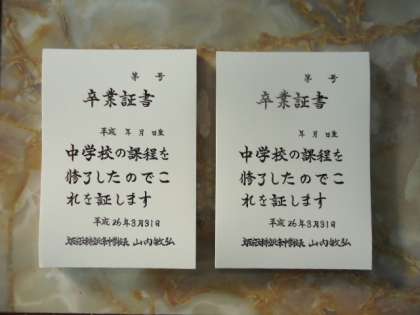 第 号
卒業証書
平成 年 月 日生
中学校の課程を
修了したのでこ
れを証します
平成26年3月31日
山内敏弘
第 号
卒業証書
年 月 日生
中学校の課程を
修了したのでこ
れを証します
平成26年3月31日
山内敏弘